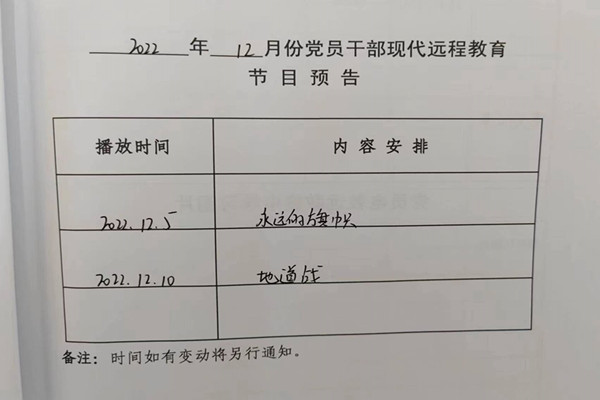 2022 年 12 月份党员干部现代远程教育
节目预告
播放时间 内容安排
2022.12.5 永远的旗帜
2022.12.10 地道战
备注：时间如有变动将另行通知。